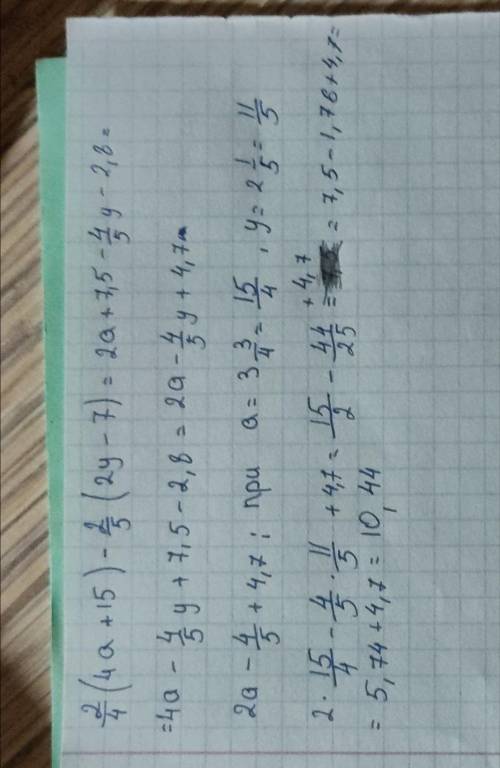 2/4 (4a + 15) - 2/5 (2y - 7) = 2a + 7,5 - 4/5 y - 2,8 =
= 4a - 4/5 y + 7,5 - 2,8 = 2a - 4/5 y + 4,7
2a - 4/5 + 4,7 ; при a = 3 3/4 = 15/4 , y = 2 1/5 = 11/5
2 · 15/4 - 4/5 · 11/5 + 4,7 = 15/2 - 44/25 + 4,7 = = 7,5 - 1,76 + 4,7 =
= 5,74 + 4,7 = 10,44